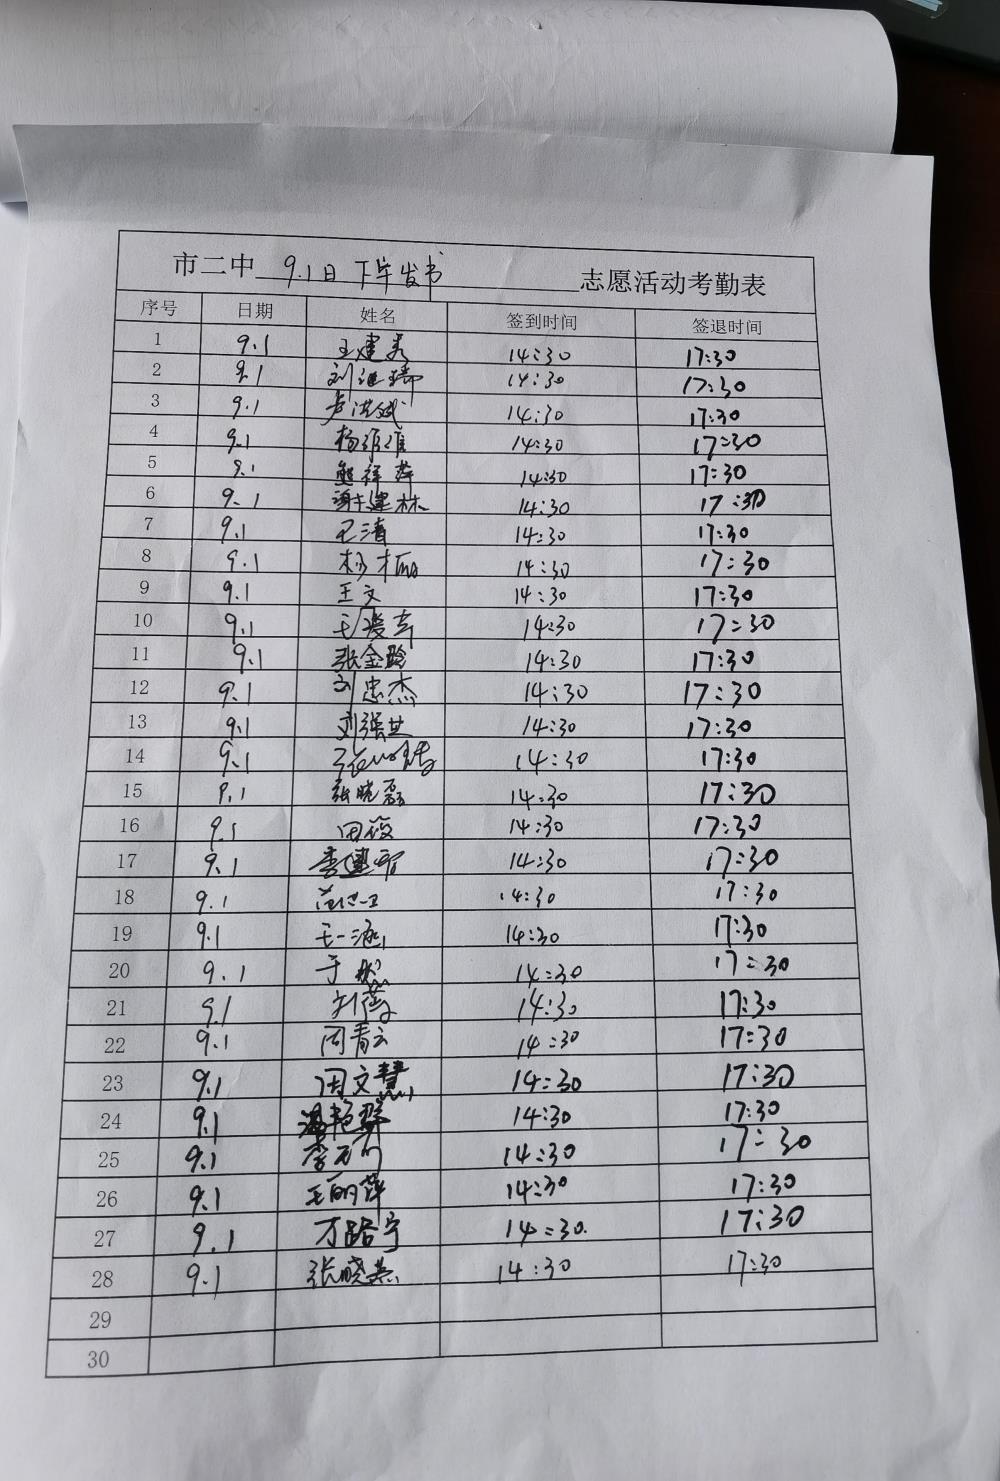 市二中 9.1日 下午发书 志愿活动考勤表
序号 日期 姓名 签到时间 签退时间
1 9.1 王建 14:30 17:30
2 9.1 刘 14:30 17:30
3 9.1 卢洪斌 14:30 17:30
4 9.1 杨 14:30 17:30
5 9.1 熊祥萍 14:30 17:30
6 9.1 谢建林 14:30 17:30
7 9.1 王涛 14:30 17:30
8 9.1 杨丽 14:30 17:30
9 9.1 王文 14:30 17:30
10 9.1 王 14:30 17:30
11 9.1 张金玲 14:30 17:30
12 9.1 刘忠杰 14:30 17:30
13 9.1 刘强 14:30 17:30
14 9.1 张 14:30 17:30
15 9.1 张晓磊 14:30 17:30
16 9.1 田筱 14:30 17:30
17 9.1 李建 14:30 17:30
18 9.1 范 14:30 17:30
19 9.1 王一涵 14:30 17:30
20 9.1 于 14:30 17:30
21 9.1 刘 14:30 17:30
22 9.1 周青云 14:30 17:30
23 9.1 周文慧 14:30 17:30
24 9.1 14:30 17:30
25 9.1 李 14:30 17:30
26 9.1 王丽萍 14:30 17:30
27 9.1 万路宁 14:30 17:30
28 9.1 张晓燕 14:30 17:30
29
30